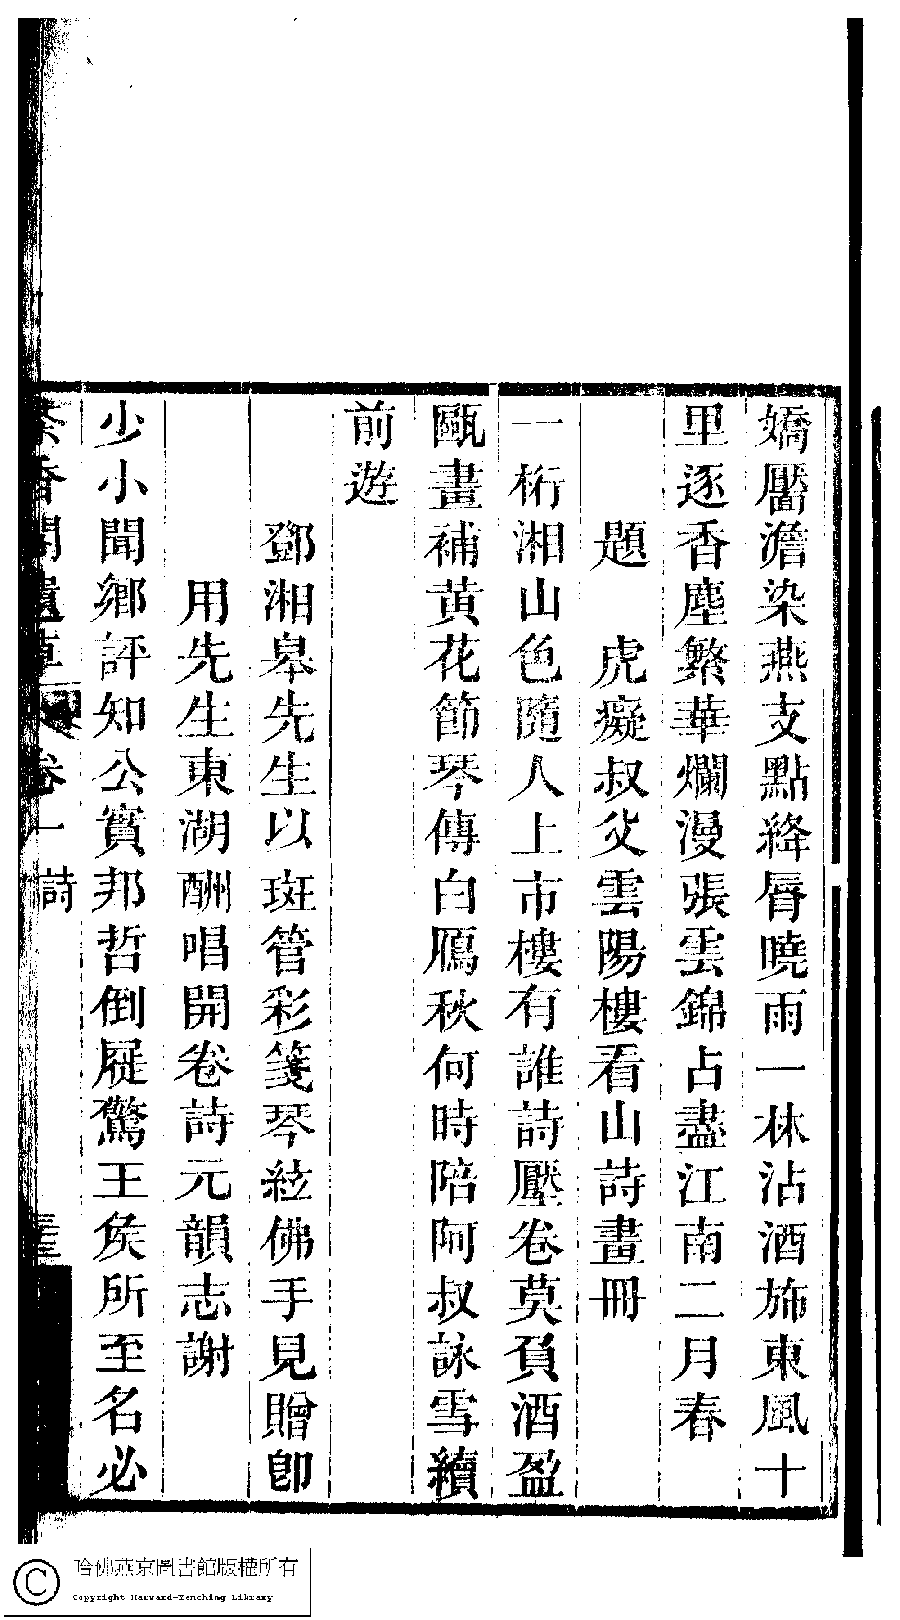 嬌靨澹染燕支點絳脣曉雨一林沾酒斾東風十
里逐香塵繁華爛漫張雲錦占盡江南二月春
題　虎癡叔父雲陽樓看山詩畫冊
一桁湘山色隨人上市樓有誰詩壓卷莫負酒盈
甌畫補黃花節琴傳白鴈秋何時陪阿叔詠雪續
前遊
鄧湘皋先生以斑管彩箋琴絃佛手見贈卽
用先生東湖酬唱開卷詩元韻志謝
少小聞鄉評知公實邦哲倒屣驚王矦所至名必
香閣遺草
卷一
詩
哈佛燕京圖書館版權所有
Copyright Harvard-Yenching Library